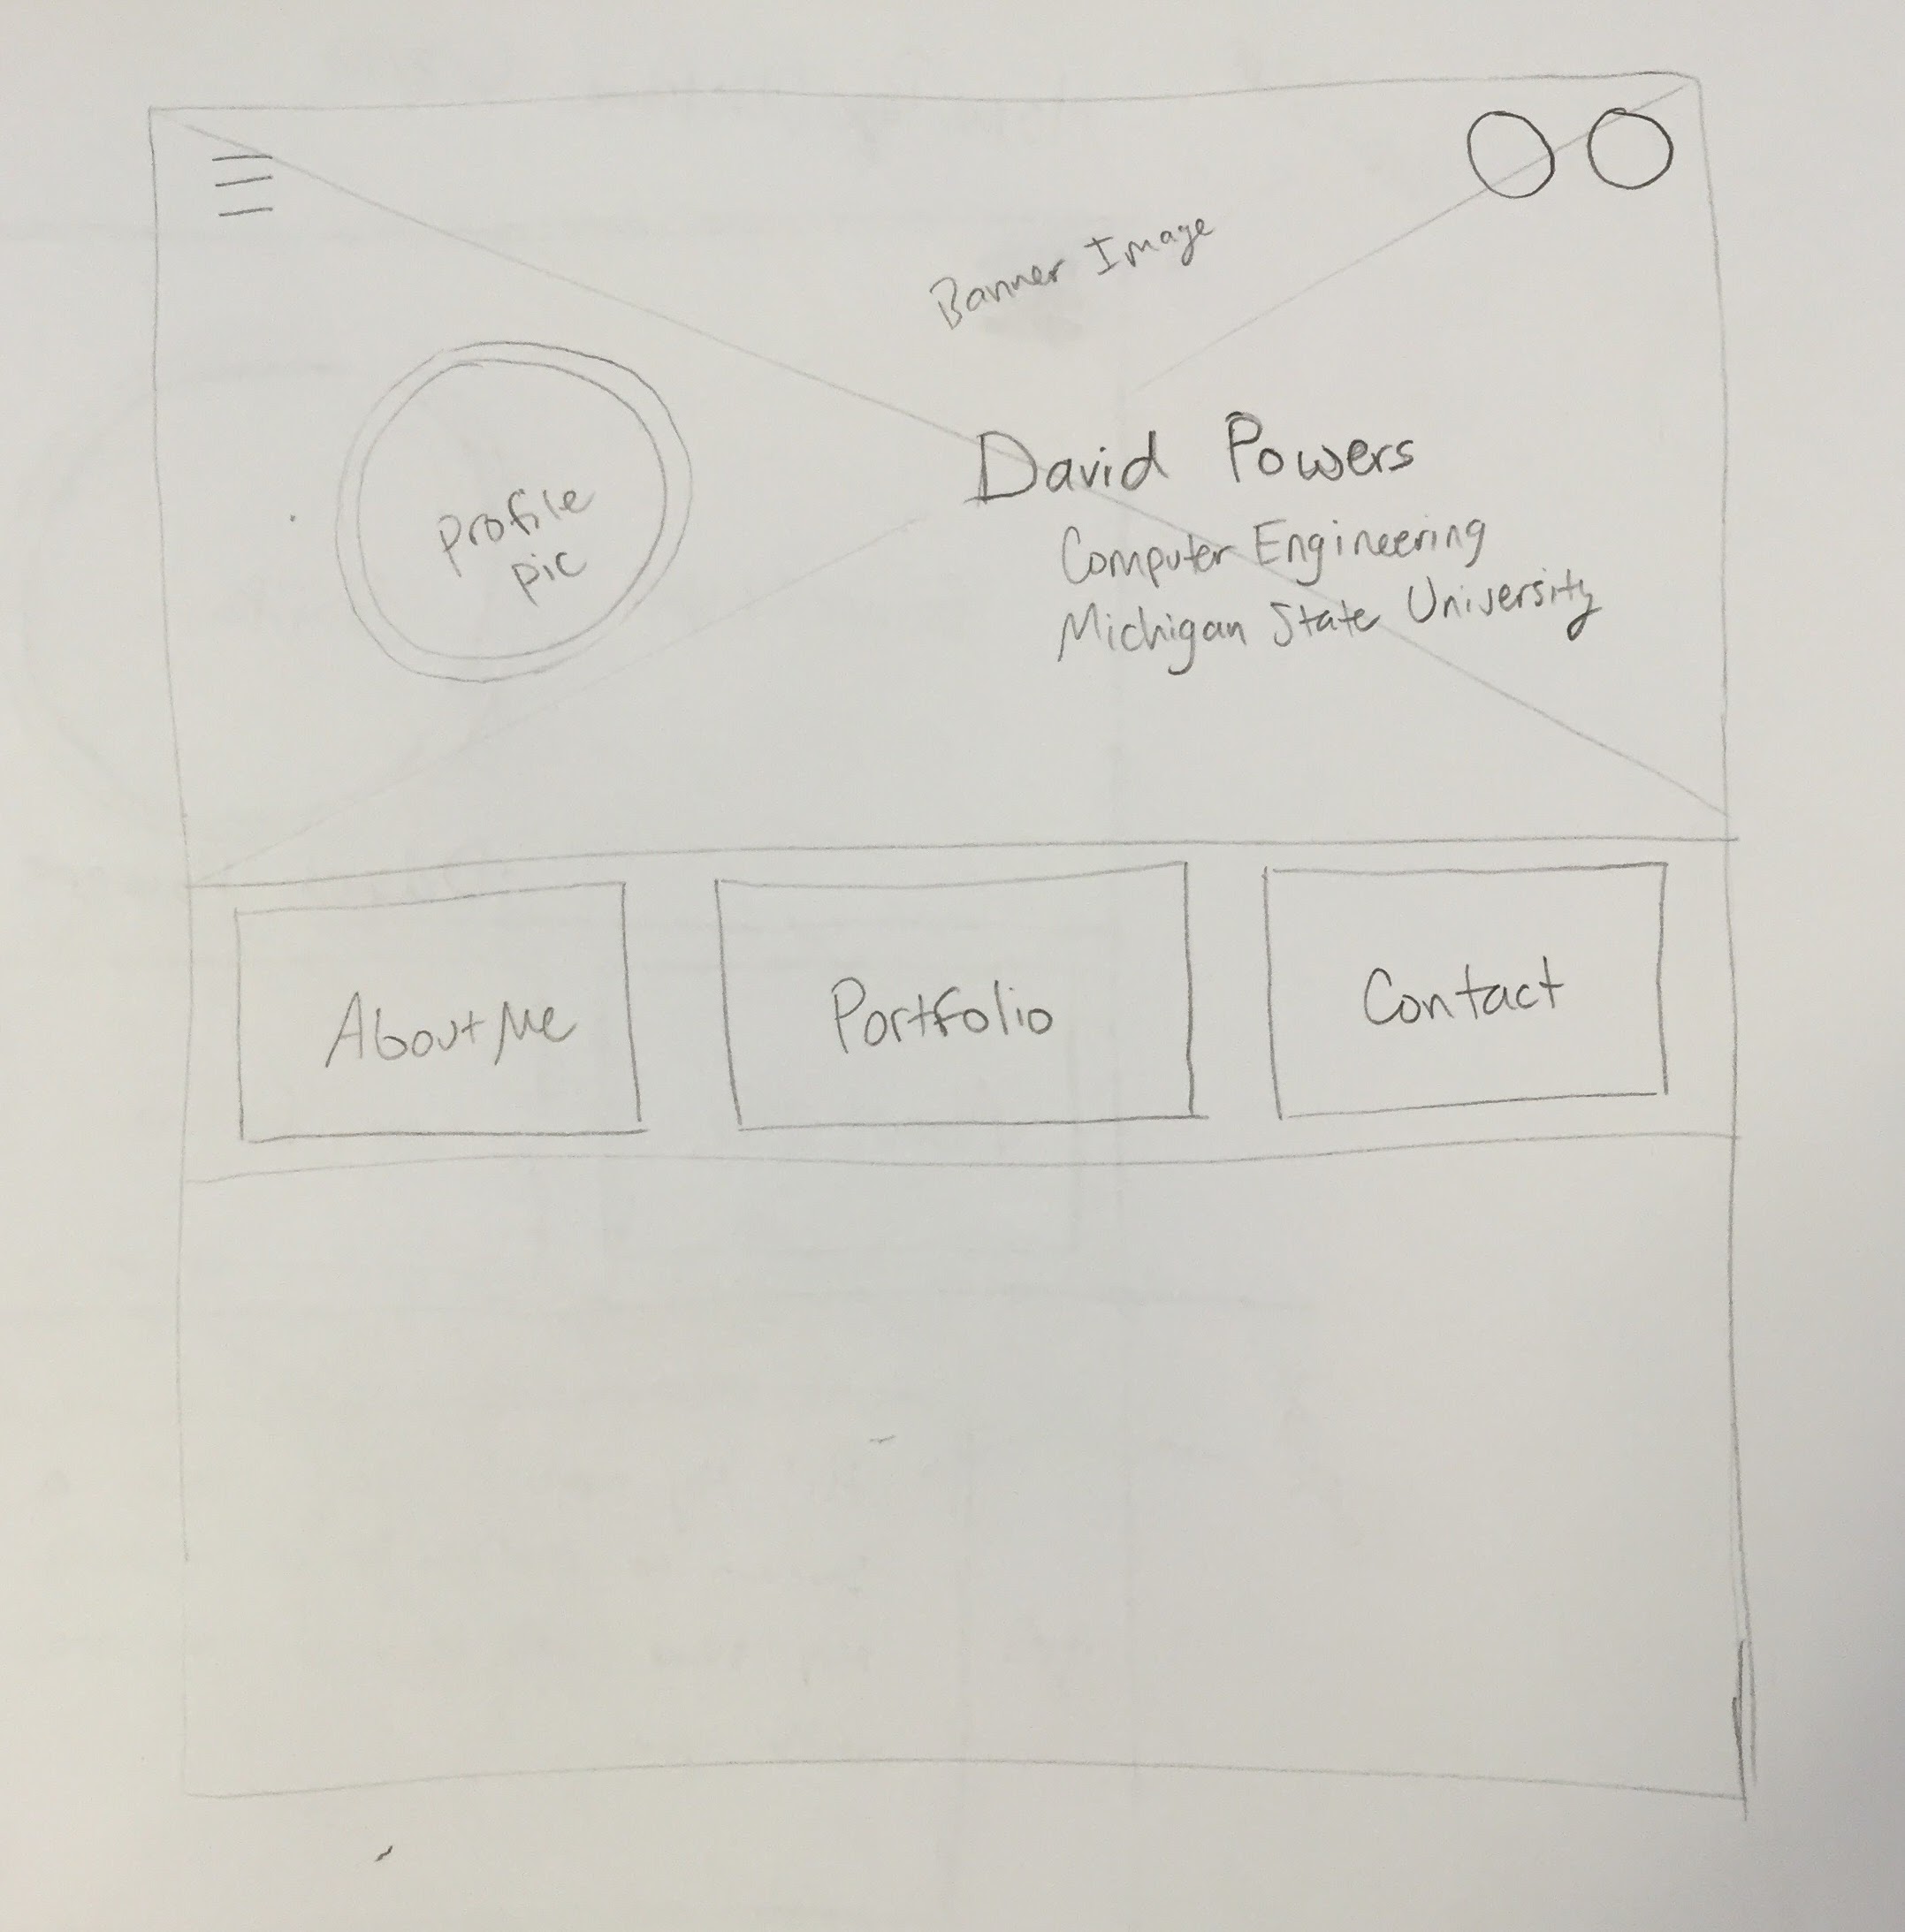 Banner Image
profile
pic
David Powers
Computer Engineering
Michigan State University
About Me
Portfolio
Contact